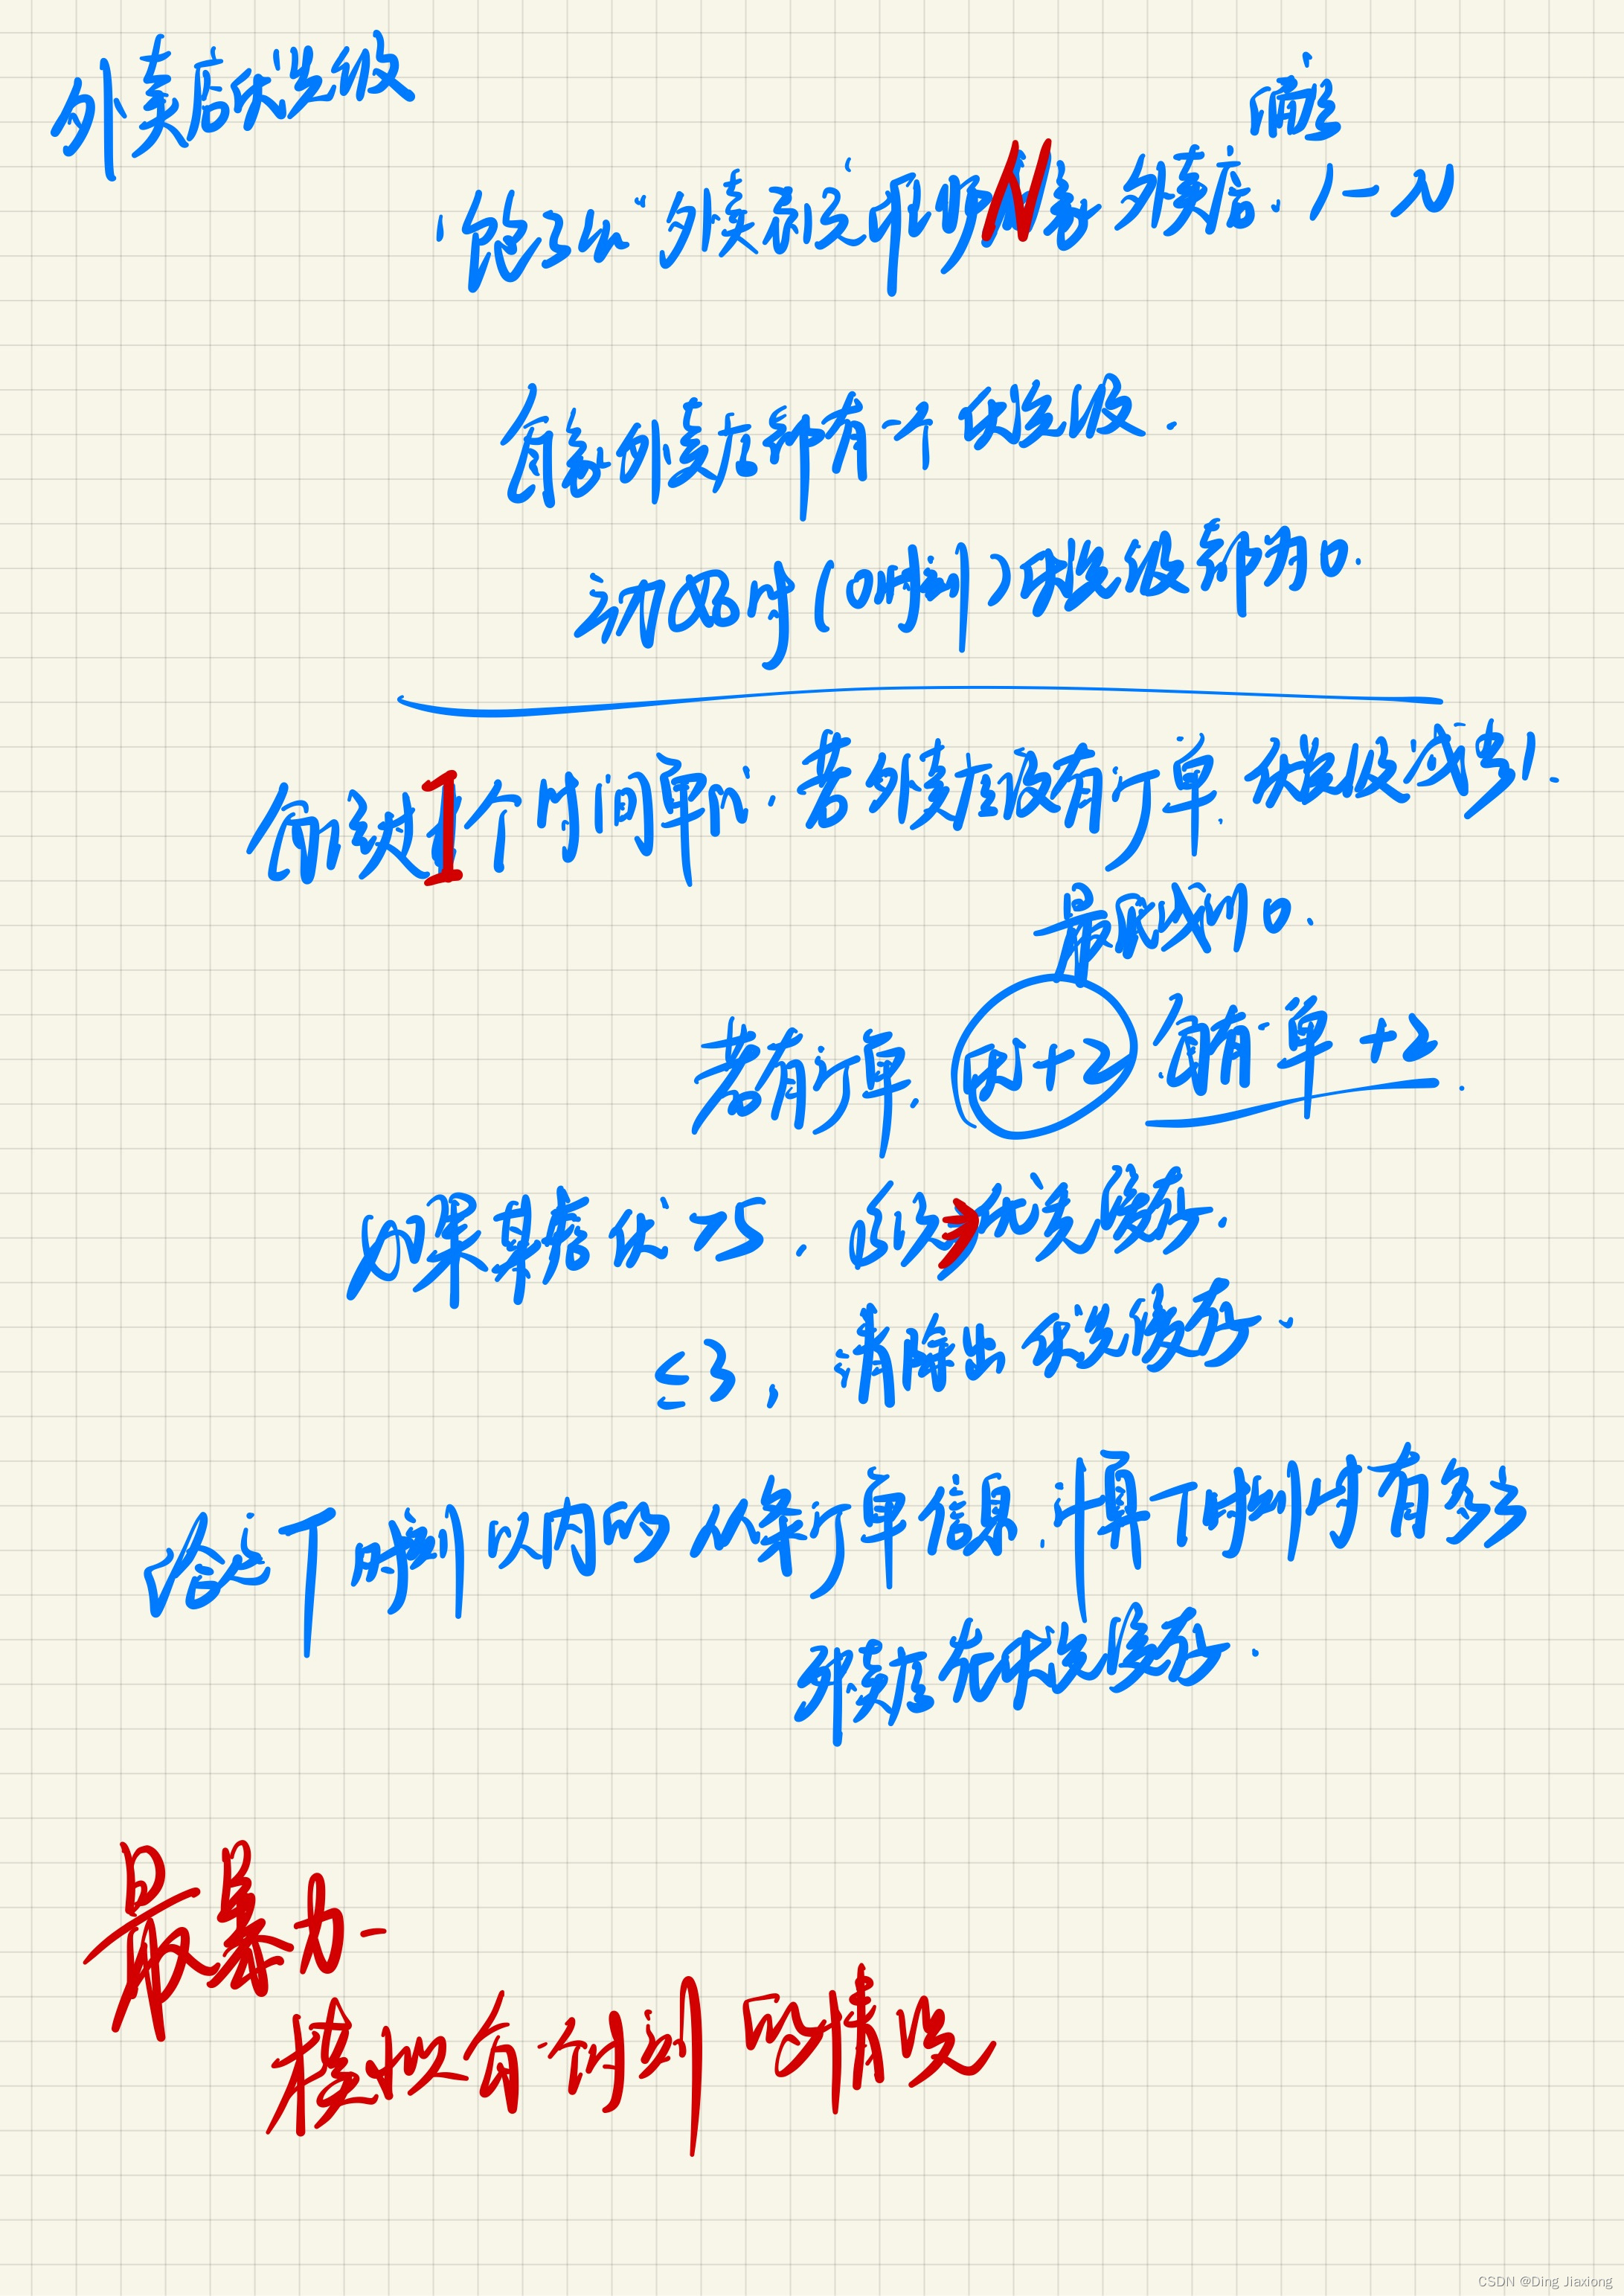 外卖店优先级
编号
"饱了么"外卖系统中维护N家外卖店. 1—N
每家外卖店都有一个优先级.
初始时(0时刻)优先级都为0.
每过1个时间单位. 若外卖店没有订单. 优先级减少1.
最低减到0.
若有订单. 则+2 每有一单+2.
如果某店优>5. 则加入优先缓存.
≤3, 清除出优先缓存.
给定T时刻以内的M条订单信息. 计算T时刻时有多少
外卖店在优先缓存.
最暴力—
模拟每一个时刻的情况
CSDN @Ding Jiaxiong